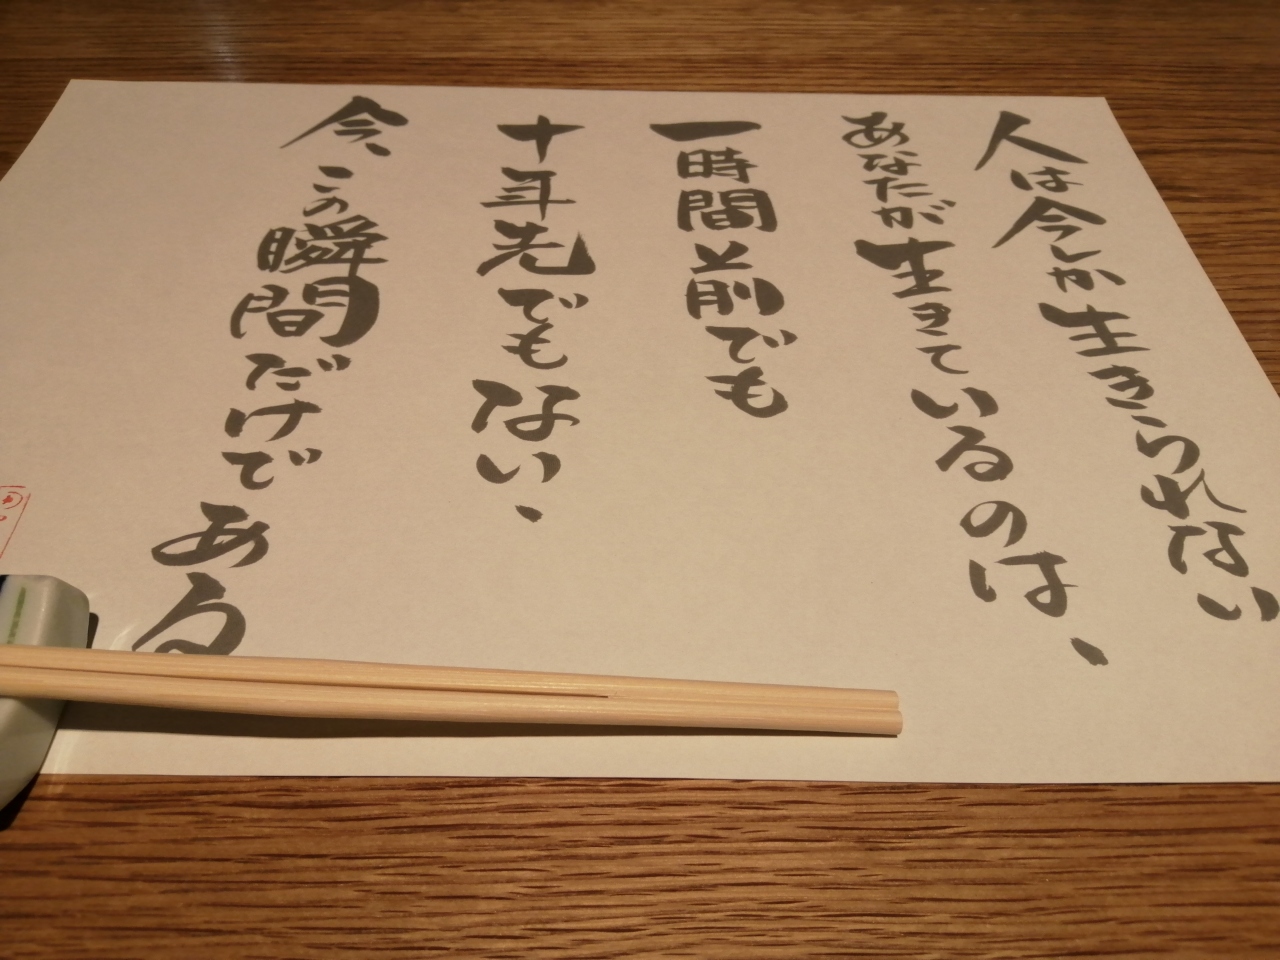 人は今しか生きられない
あなたが生きているのは、
一時間と前でも
十年先でもない、
今、この瞬間だけである